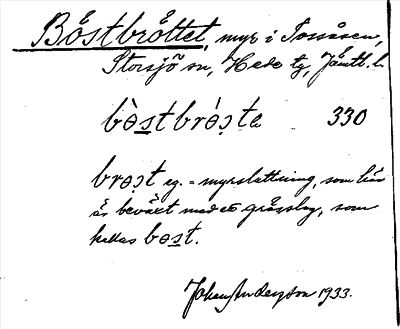 Båstbråttet, myr i Tossåsen,
Storsjö sn, Hede tg, Jämtl. l.
bòstbró̩sta 330
brost eg. = myrslättning, som här
är beväxt med ett grässlag, som
kallas bost.
Johan Anderzon 1933.